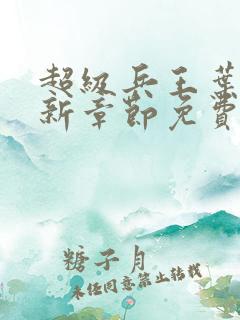 超级兵王葉
新章節免費
糖子月
未经同意禁止转载